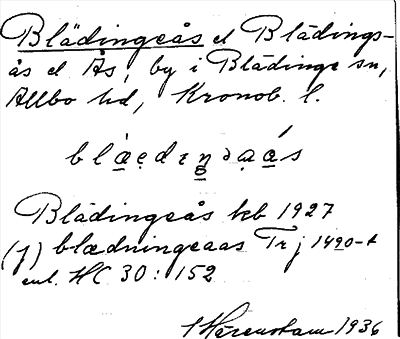 Blädingeås el Blädings-
ås el Ås, by i Blädinge sn,
Allbo hd, Kronob. l.
blàedıŋəaás
Blädingeås kb 1927
(J) blædningeaas Trj 1490-t
enl. HC 30: 152
1936